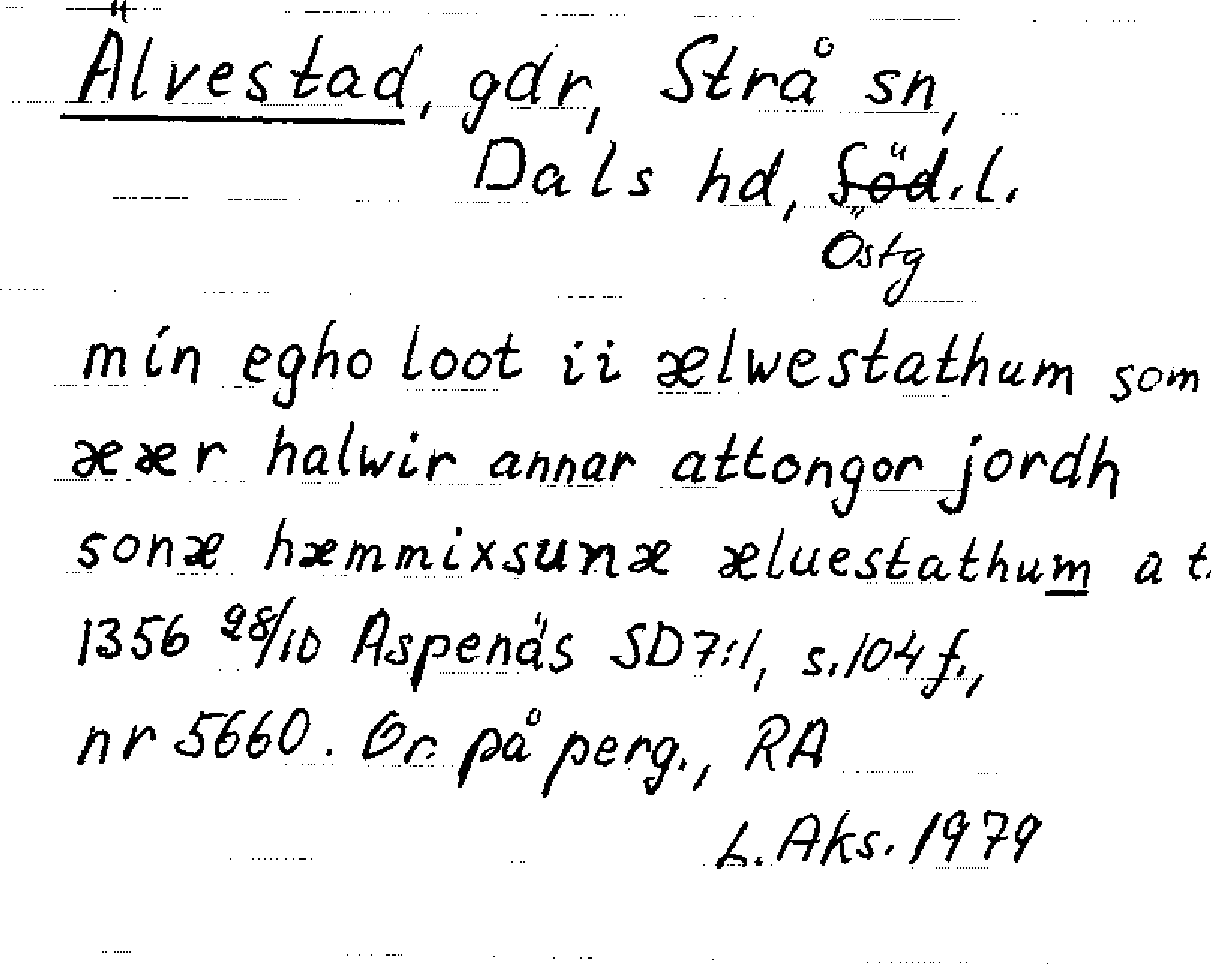 Älvestad, gdr, Strå sn,
Dals hd, Söd.l.
Östg
min egho loot ii ælwestathum som
æær halwir annar attongor jordh
sonæ hæmmixsunæ æluestathum a t.
1356 28/10 Aspenäs SD7:1, s.104 f.,
nr 5660. Or. på perg., RA
L. Aks. 1979